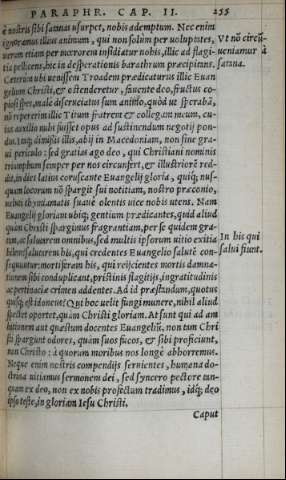 PARAPHR. CAP. II. 255
è nostris sibi satanas usurpet, nobis ademptum. Nec enim
ignoramus illius animum, qui non solùm per uoluptates,
uerum etiam per mœrorem insidiatur nobis, illic ad flagi-
tia pelliciens, hic in desperationis barathrum præcipitans.
Cæterùm ubi uenissem Troadem prædicaturus illic Euan
gelium Christi, & ostenderetur, fauente deo, fructus co-
piosi spes, male discruciatus sum animo, quòd ut sperabã,
nõ repererim illic Titum fratrem & collegam meum, cu-
ius auxilio nobis fuisset opus ad sustinendum negotij pon-
dus. Itaq; dimissis illis, abij in Macedoniam, non sine gra-
ui periculo: sed gratias ago deo, qui Christiani nominis
triumphum semper per nos circunfert, & illustriorẽ red-
dit, in dies latius coruscante Euangelij gloria, quiq; nus-
quam locorum nõ spargit sui notitiam, nostro præconio,
uelut thymiamatis suauè olentis uice nobis utens. Nam
Euangelij gloriam ubiq; gentium prædicantes, quid aliud
quàm Christi spargimus fragrantiam, per se quidem gra-
tam, ac salutarem omnibus, sed multis ipsorum uitio exitia
bilem: salutarem his, qui credentes Euangelio salutẽ con-
sequuntur: mortiferam his, qui reijcientes mortis damna-
tionem sibi conduplicant, pristinis flagitijs, ingratitudinis
ac pertinaciæ crimen addentes. Ad id præstandum, quotus
quisq; est idoneus? Qui hoc uelit fungi munere, nihil aliud
spectet oportet, quàm Christi gloriam. At sunt qui ad am
bitionem aut quæstum docentes Euangeliũ, non tum Chri
sti spargunt odores, quàm suos fucos, & sibi proficiunt,
non Christo: à quorum moribus nos longè abhorremus.
Neque enim nostris compendijs seruientes, humana do-
ctrina uitiamus sermonem dei, sed syncero pectore tan-
quam ex deo, non ex nobis profectum tradimus, idq; deo
ipso teste, in gloriam Iesu Christi.
Caput
Vt nõ circũ-
ueniamur à
satana.
In his qui
salui fiunt.